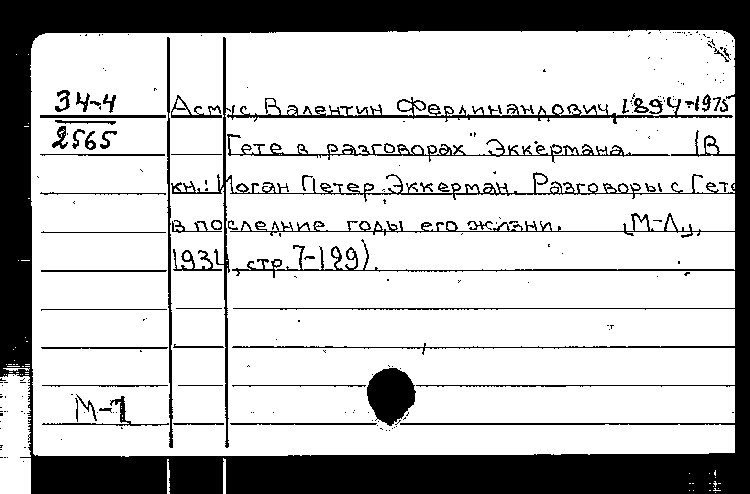 34-4 Асмус, Валентин Фердинандович, 1894-1975
2565 Гете в разговорах" Эккермана. (В
кн.: Иоган Петер Эккерман. Разговоры с Гете
в последние годы его жизни. М-Л.,
1934, стр. 7-129).
М-1